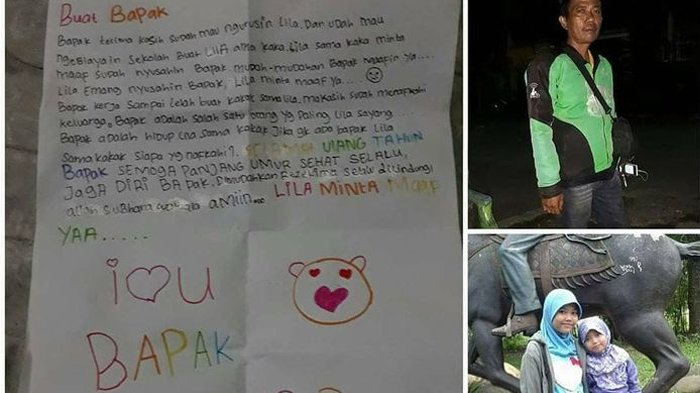 Buat BAPAK
BAPAK terima kasih sudah mau ngurusin Lila. Dan udah mau
ngebiayain sekolah Buat LilA ama kaka. Lila sama kaka minta
maaf sudah nyusahin Bapak mudah-mudahan Bapak maafin ya....
Lila Emang nyusahin BaPak, Lila minta maaf ya....
Bapak kerja Sampai lelah buat kakak sama lila, makasih sudah menafkahi
keluarga. Bapak adalah salah satu orang yg Paling Lila sayang...
Bapak adalah hidup Lila sama kakak Jika gk ada bapak Lila
Sama kakak siapa yg nafkahi?. SELAMAT ULANG TAHUN
Bapak SEMOGA PANJANG UMUR SEHAT SELALU,
JAGA DIRI BAPAK. Dimudahkan selalu dilindungi
allah SuBhana amiin... LILA MINTA MaaF
YAA.....
i u
BAPAK